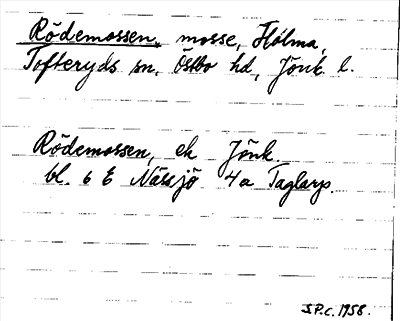 Rödemossen, mosse, Hólma,
Tofteryds sn, Östbo hd, Jönk. l.
Rödemossen, ek Jönk.
bl. 6 E Nässjö 4a Taglarp.
S.P.c. 1958.